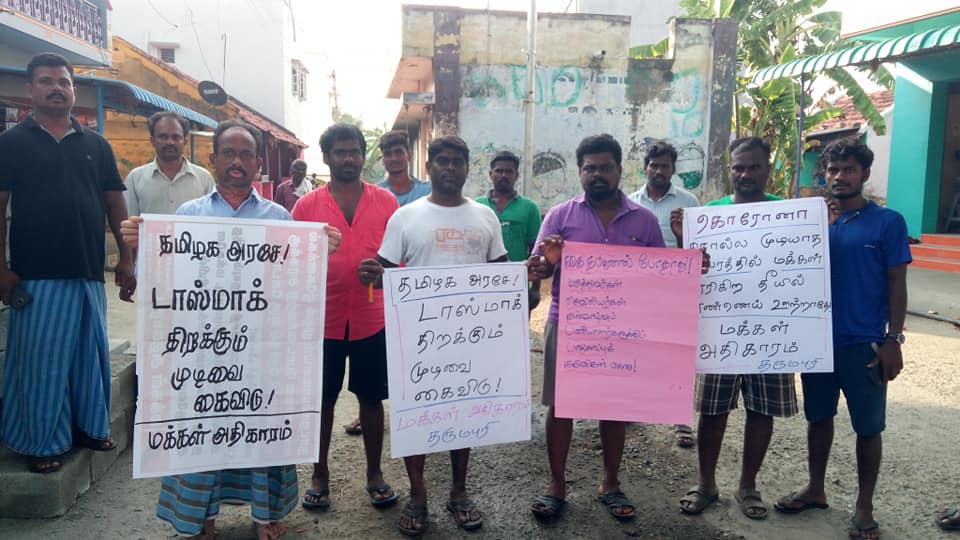 தமிழக அரசே!
டாஸ்மாக்
திறக்கும்
முடிவை
கைவிடு!
மக்கள் அதிகாரம்
தமிழக அரசே!
டாஸ்மாக்
திறக்கும்
முடிவை
கைவிடு!
மக்கள் அதிகாரம்
தருமபுரி
போதாது!
மருத்துவர்கள்
செவிலியர்கள்
பாதுகாப்புக்
கொரோனா
கொல்ல முடியாத
மக்கள்
தீயில்
ஊற்றாதே!
மக்கள்
அதிகாரம்
தருமபுரி